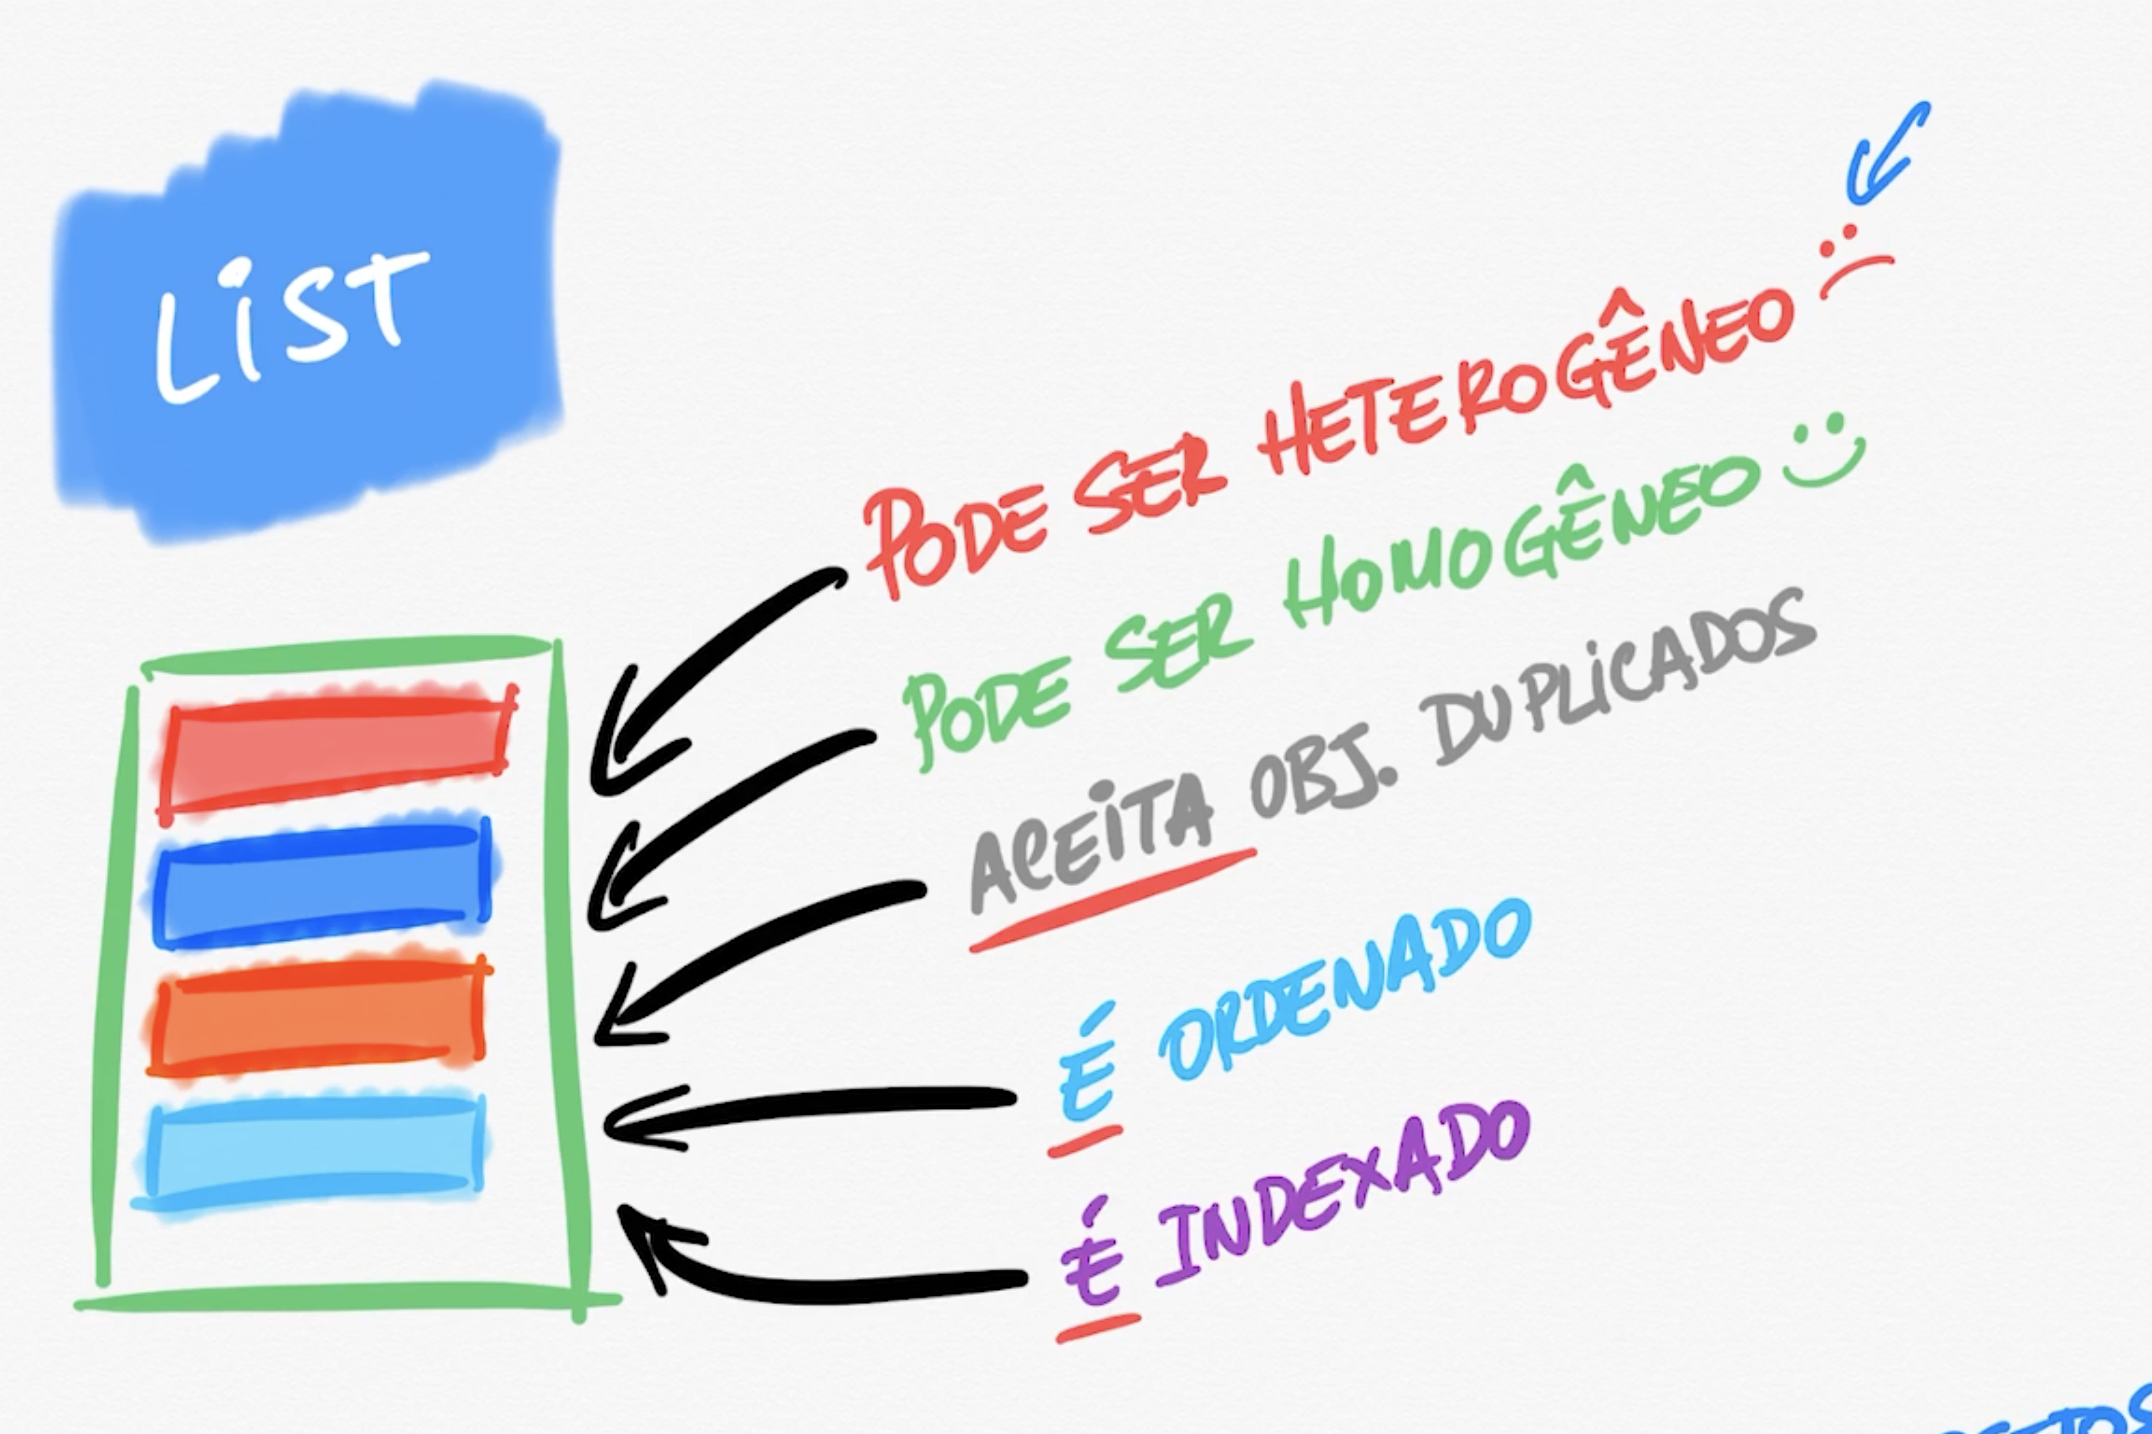 LIST
PODE SER HETEROGÊNEO
PODE SER HOMOGÊNEO
ACEITA OBJ. DUPLICADOS
É ORDENADO
É INDEXADO